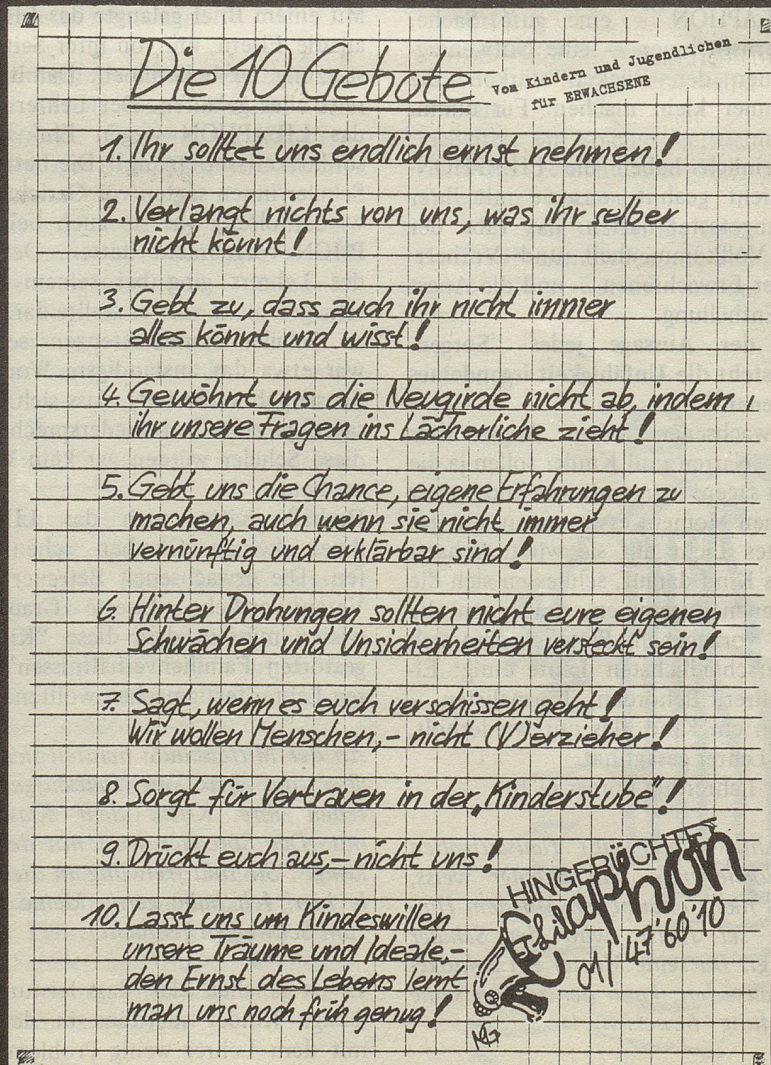 Die 10 Gebote
Vom Kindern und Jugendlichen
für ERWACHSENE
1. Ihr solltet uns endlich ernst nehmen!
2. Verlangt nichts von uns, was ihr selber
nicht könnt!
3. Gebt zu, dass auch ihr nicht immer
alles könnt und wisst!
4. Gewöhnt uns die Neugirde nicht ab, indem
ihr unsere Fragen ins Lächerliche zieht!
5. Gebt uns die Chance, eigene Erfahrungen zu
machen, auch wenn sie nicht immer
vernünftig und erklärbar sind!
6. Hinter Drohungen sollten nicht eure eigenen
Schwächen und Unsicherheiten versteckt sein!
7. Sagt, wenn es euch verschissen geht!
Wir wollen Menschen,- nicht (V)erzieher!
8. Sorgt für Vertrauen in der „Kinderstube"!
9. Drückt euch aus,- nicht uns!
10. Lasst uns um Kindeswillen
unsere Träume und Ideale,-
den Ernst des Lebens lernt
man uns noch früh genug!
HINGERÜCHTET
Lilaphon
01/'47'60'10
MG